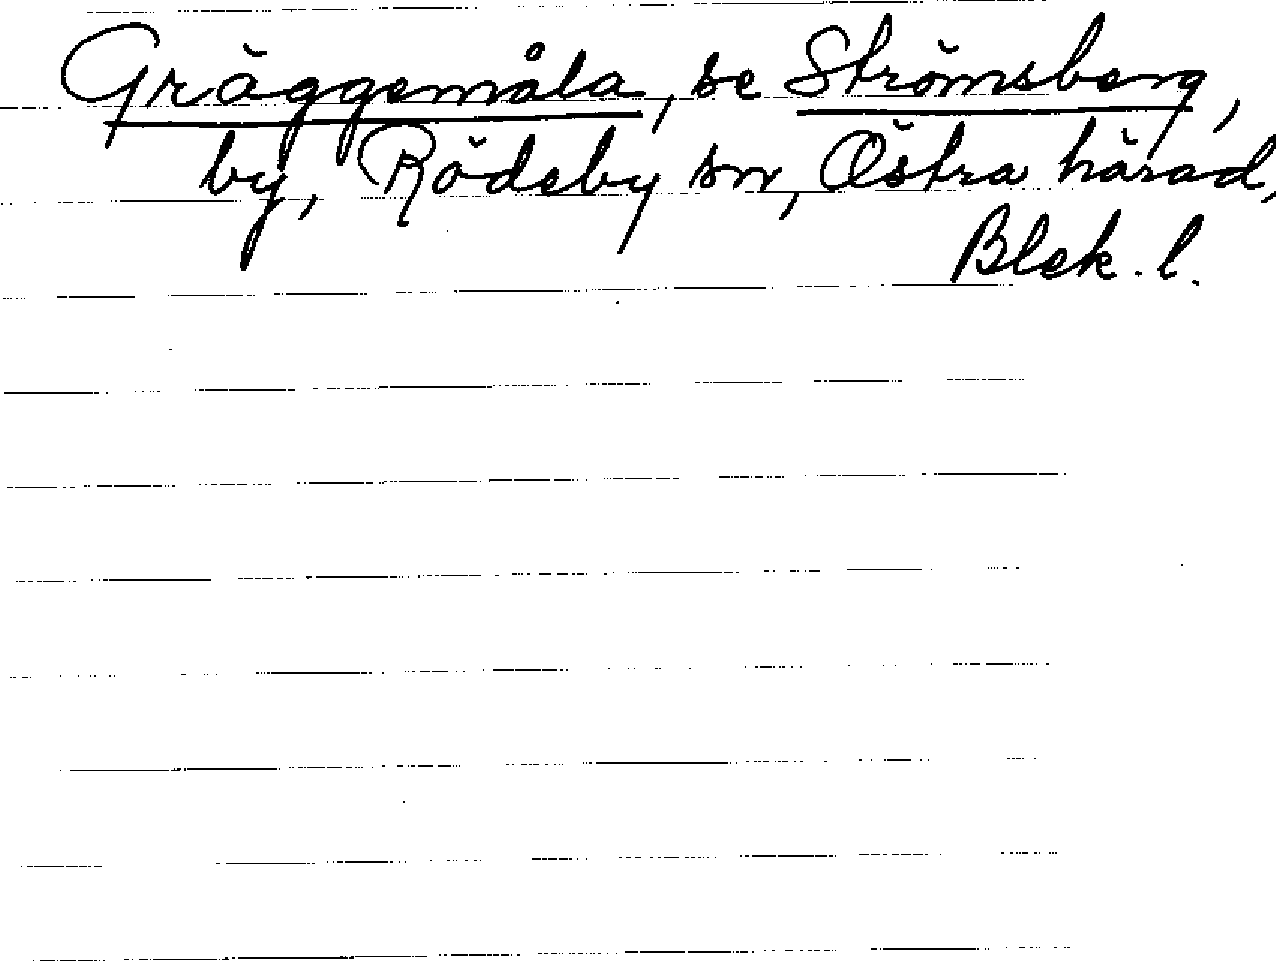 Gräggemåla, se Strömsberg,
by, Rödeby sn, Östra härad,
Blek. l.